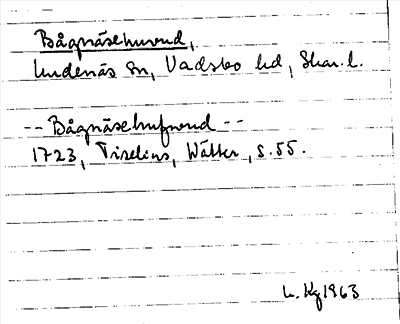 Bågnäsehuvud,
Undenäs sn, Vadsbo hd, Skar. l.
-- Bågnäsehufwud --
1723, Tiselius, Wätter, s. 55.
L. Kg 1963